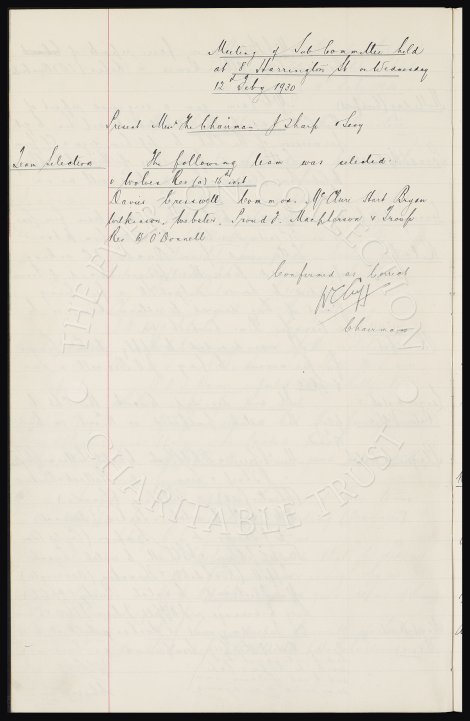 Meeting of Sub Committee held
at 8 Harrington St on Wednesday
12th Feby 1930
Present Messrs The Chairman J Sharp & Secy
Team Selected
The following team was selected.
v Wolves Res (a) 15th inst
Davies Cresswell, Common. McClure Hart Bryan
Wilkinson, Webster, Proud J. Macpherson & Troup
Res B O'Donnell
Confirmed as Correct
W C Cuff
Chairman
THE EVERTON COLLECTION
CHARITABLE TRUST